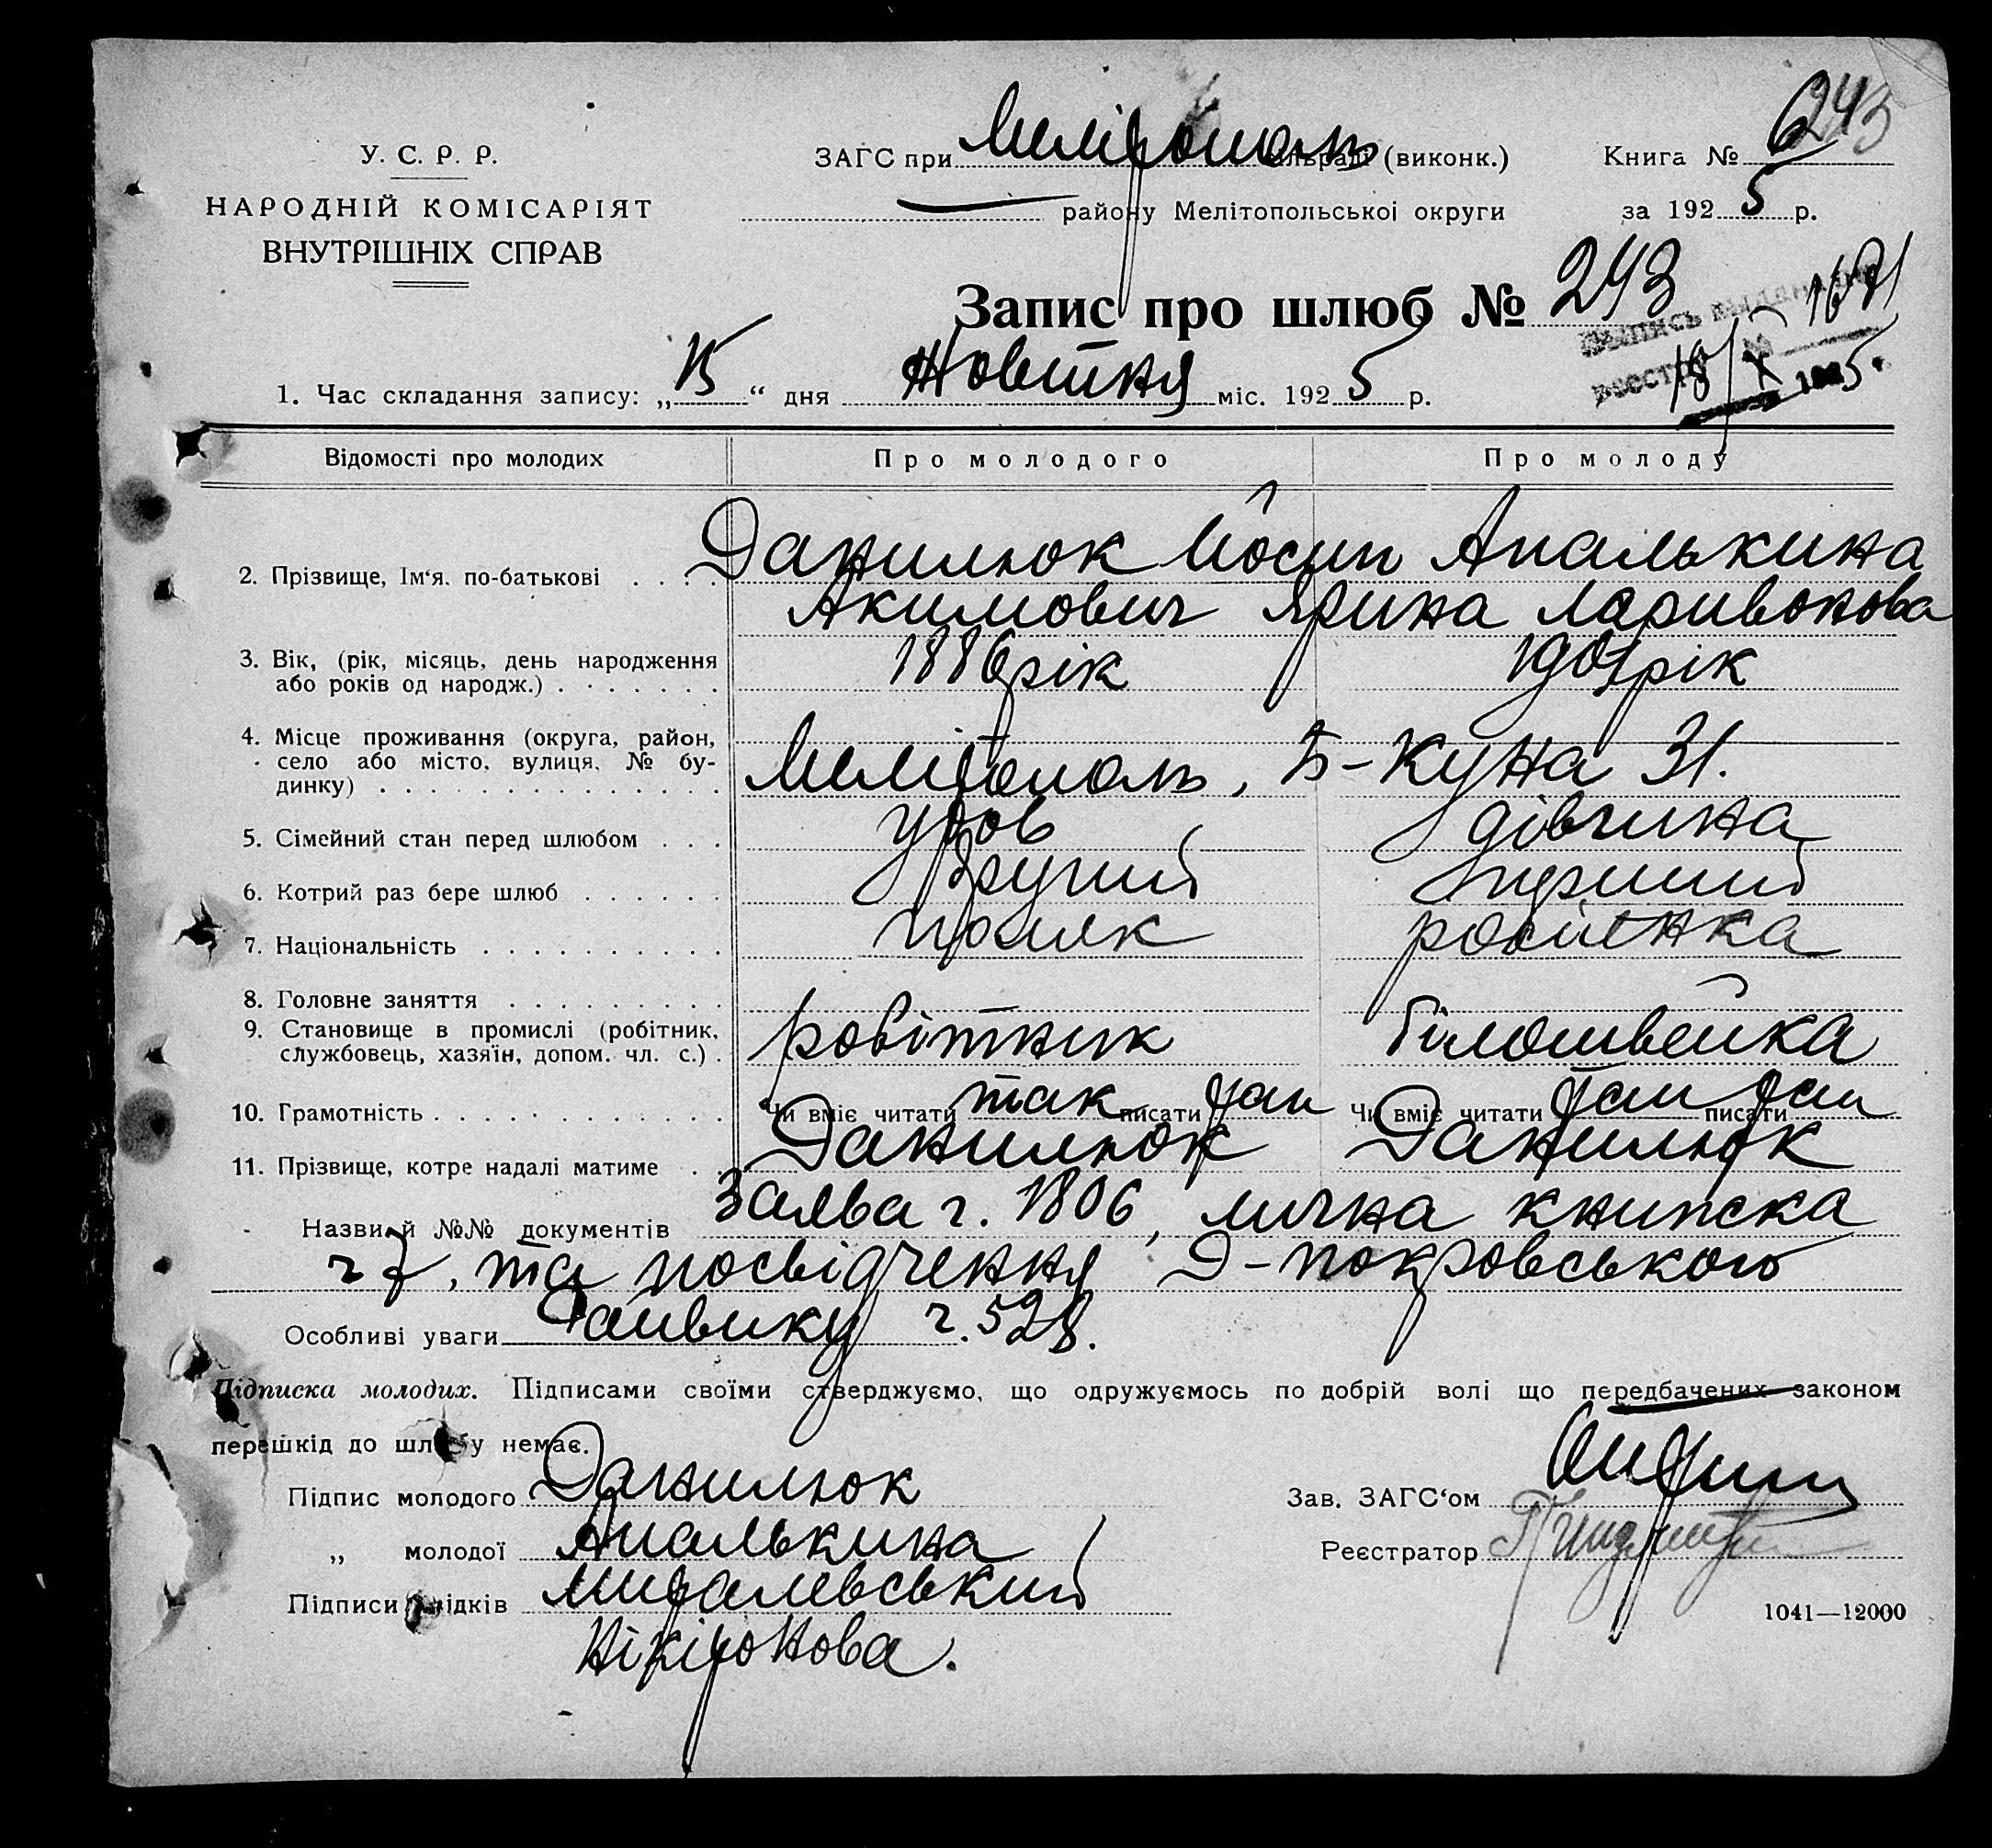 243
У. С. Р. Р.
НАРОДНІЙ КОМІСАРІЯТ
ВНУТРІШНІХ СПРАВ
ЗАГС при Мелітополь сільраді (виконк.) Книга № 6
району Мелітопольської округи за 1925 р.
Запис про шлюб № 243
выпись выдана 1671
реестр № 18/X 1925.
1. Час складання запису: „15“ дня Жовтня міс. 1925 р.
Відомості про молодих Про молодого Про молоду
2. Прізвище, Ім‘я, по-батькові Данилюк Йосип Апалькина
Акимович Ярина Ларивонова
3. Вік, (рік, місяць, день народження 1886 рік 1907 рік
або років од народж.)
4. Місце проживання (округа, район,
село або місто, вулиця, № бу-
динку) Мелітополь, Б-Куна 31.
5. Сімейний стан перед шлюбом удов дівчина
6. Котрий раз бере шлюб другий перший
7. Національність поляк росіенка
8. Головне заняття
9. Становище в промислі (робітник, робітник білошвейка
службовець, хазяїн, допом. чл. с.)
10. Грамотність Чи вміє читати так писати так Чи вміє читати так писати так
11. Прізвище, котре надалі матиме Данилюк Данилюк
Назви й №№ документів Заява ч. 1806, лична книжка
ч 7, та посвідчення Д-покровського
Особливі уваги Райвику ч. 528.
Підписка молодих. Підписами своїми стверджуємо, що одружуємось по добрій волі що передбачених законом
перешкід до шлюбу немає.
Підпис молодого Данилюк Зав. ЗАГС‘ом
„ молодої Апалькина Реєстратор
Підписи свідків
Нікітонова.
1041—12000